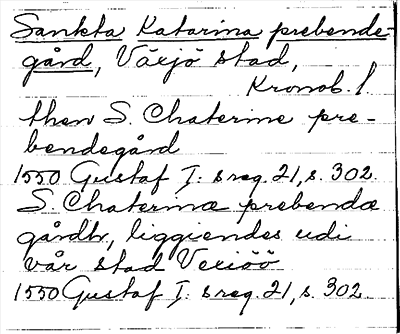 Sankta Katarina prebende-
gård, Växjö stad,
Kronob. l.
then S. Chaterine pre-
bendegård
1550 Gustaf I: s reg. 21, s. 302.
S. Chaterinæ prebendæ
gårdh, liggiendes udi
vår stad Vexiöö
1550 Gustaf I: s reg. 21, s. 302.